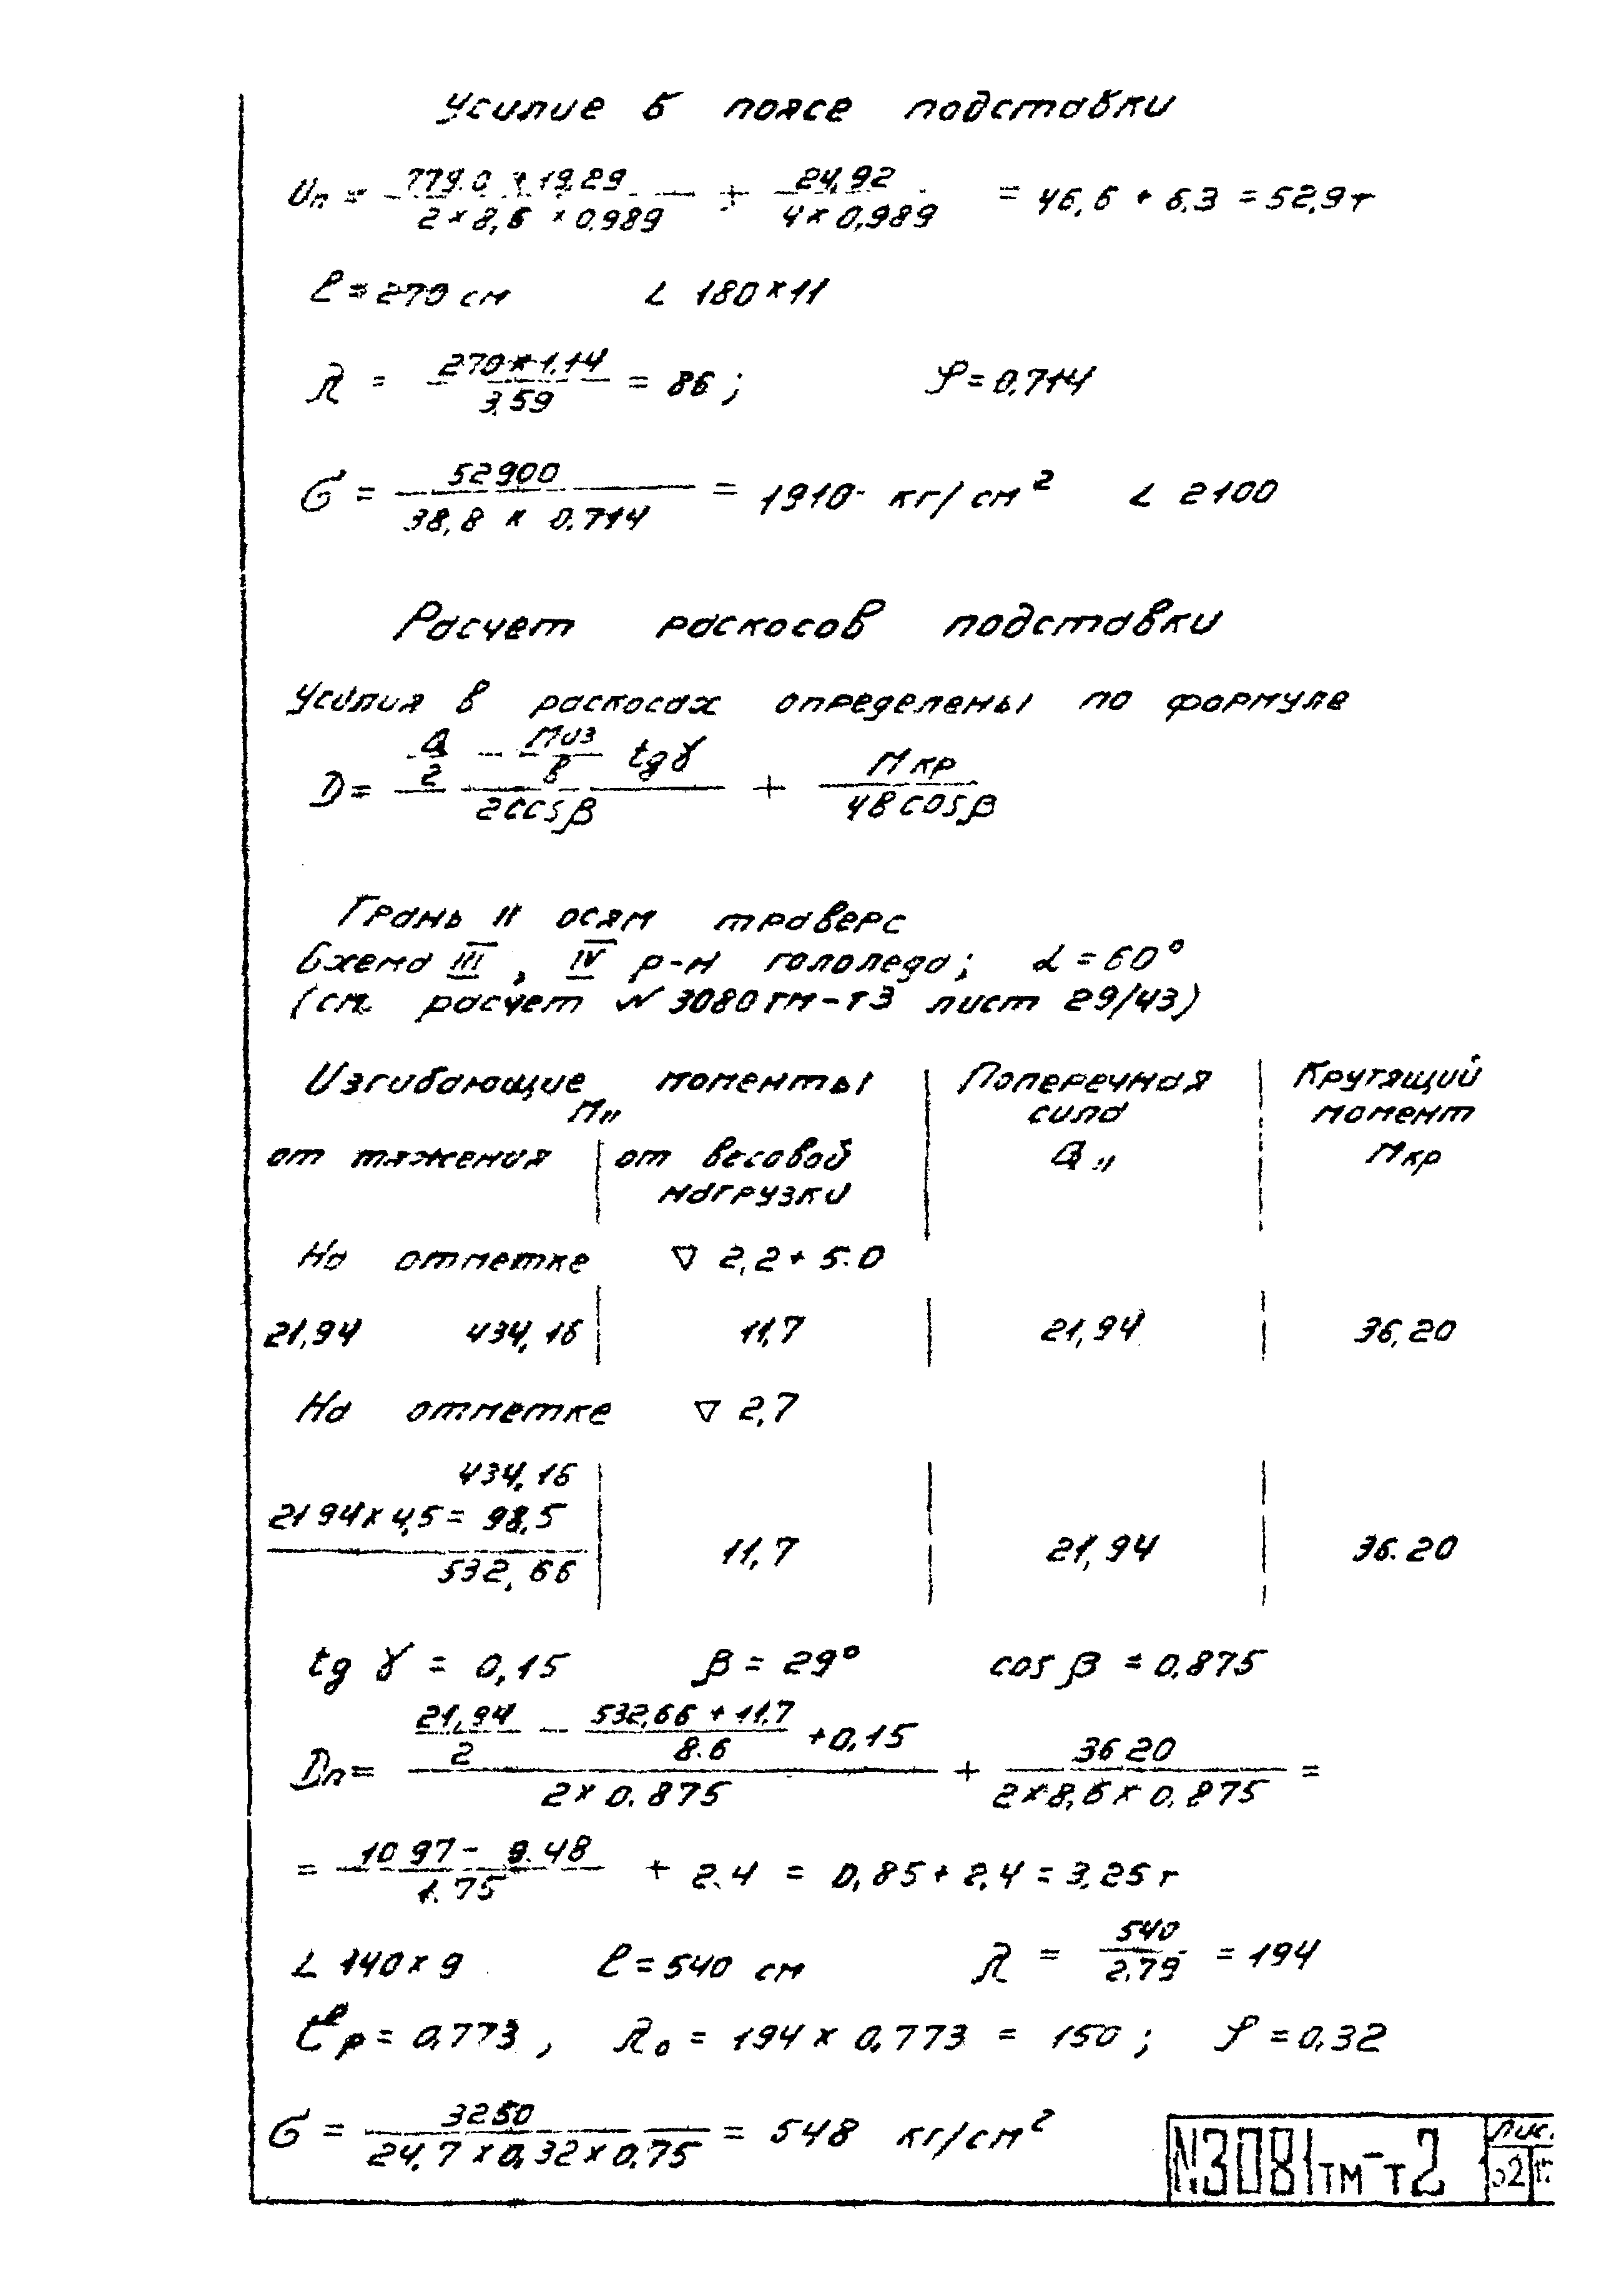 Усилие в поясе подставки
Uп = 779.0 + 19,29 / 2 × 8,6 × 0.989 + 24,92 / 4 × 0,989 = 46,6 + 6.3 = 52,9 т
ℓ = 270 см L 180×11
λ = 270 × 1.14 / 3.59 = 86 ; φ = 0.714
σ = 52900 / 38,8 × 0.714 = 1910 кг/см² < 2100
Расчет раскосов подставки
Усилия в раскосах определены по формуле
D = Q/2 - Миз/в tgγ / 2cosβ + Мкр / 4в cosβ
Грань II осям траверс
Схема III, IV р-н гололеда; α = 60°
(см. расчет № 3080тм-т3 лист 29/43)
Изгибающие моменты М" Поперечная сила Q" Крутящий момент Мкр
от тяжения от весовой нагрузки
На отметке ▽ 2,2 + 5.0
21,94 434,16 11,7 21,94 36,20
На отметке ▽ 2,7
434,16
21 94 × 4,5 = 98,5
532,66 11,7 21,94 36.20
tg γ = 0,15 β = 29° cos β = 0.875
Dп = 21,94/2 - 532,66 + 11,7 / 8.6 + 0,15 / 2 × 0.875 + 36 20 / 2 × 8,6 × 0.875 =
= 10 97 - 9.48 / 1.75 + 2.4 = 0,85 + 2,4 = 3,25 т
L 140 × 9 ℓ = 540 см λ = 540 / 2.79 = 194
р = 0,773 , λ₀ = 194 × 0,773 = 150 ; φ = 0,32
σ = 3250 / 24,7 × 0,32 × 0,75 = 548 кг/см²
N3081тм-т2
Лис.